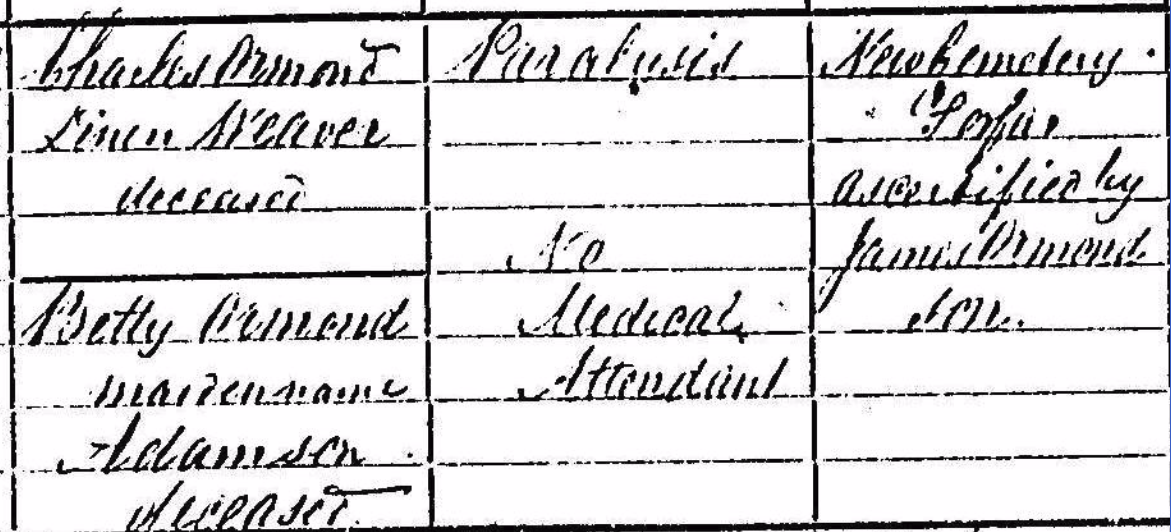 Charles Ormond
Linen Weaver
deceased
Betty Ormond
maiden name
Adamson
deceased
Paralysis
No
Medical
Attendant
New Cemetery
Forfar
as certified by
James Ormond
son.